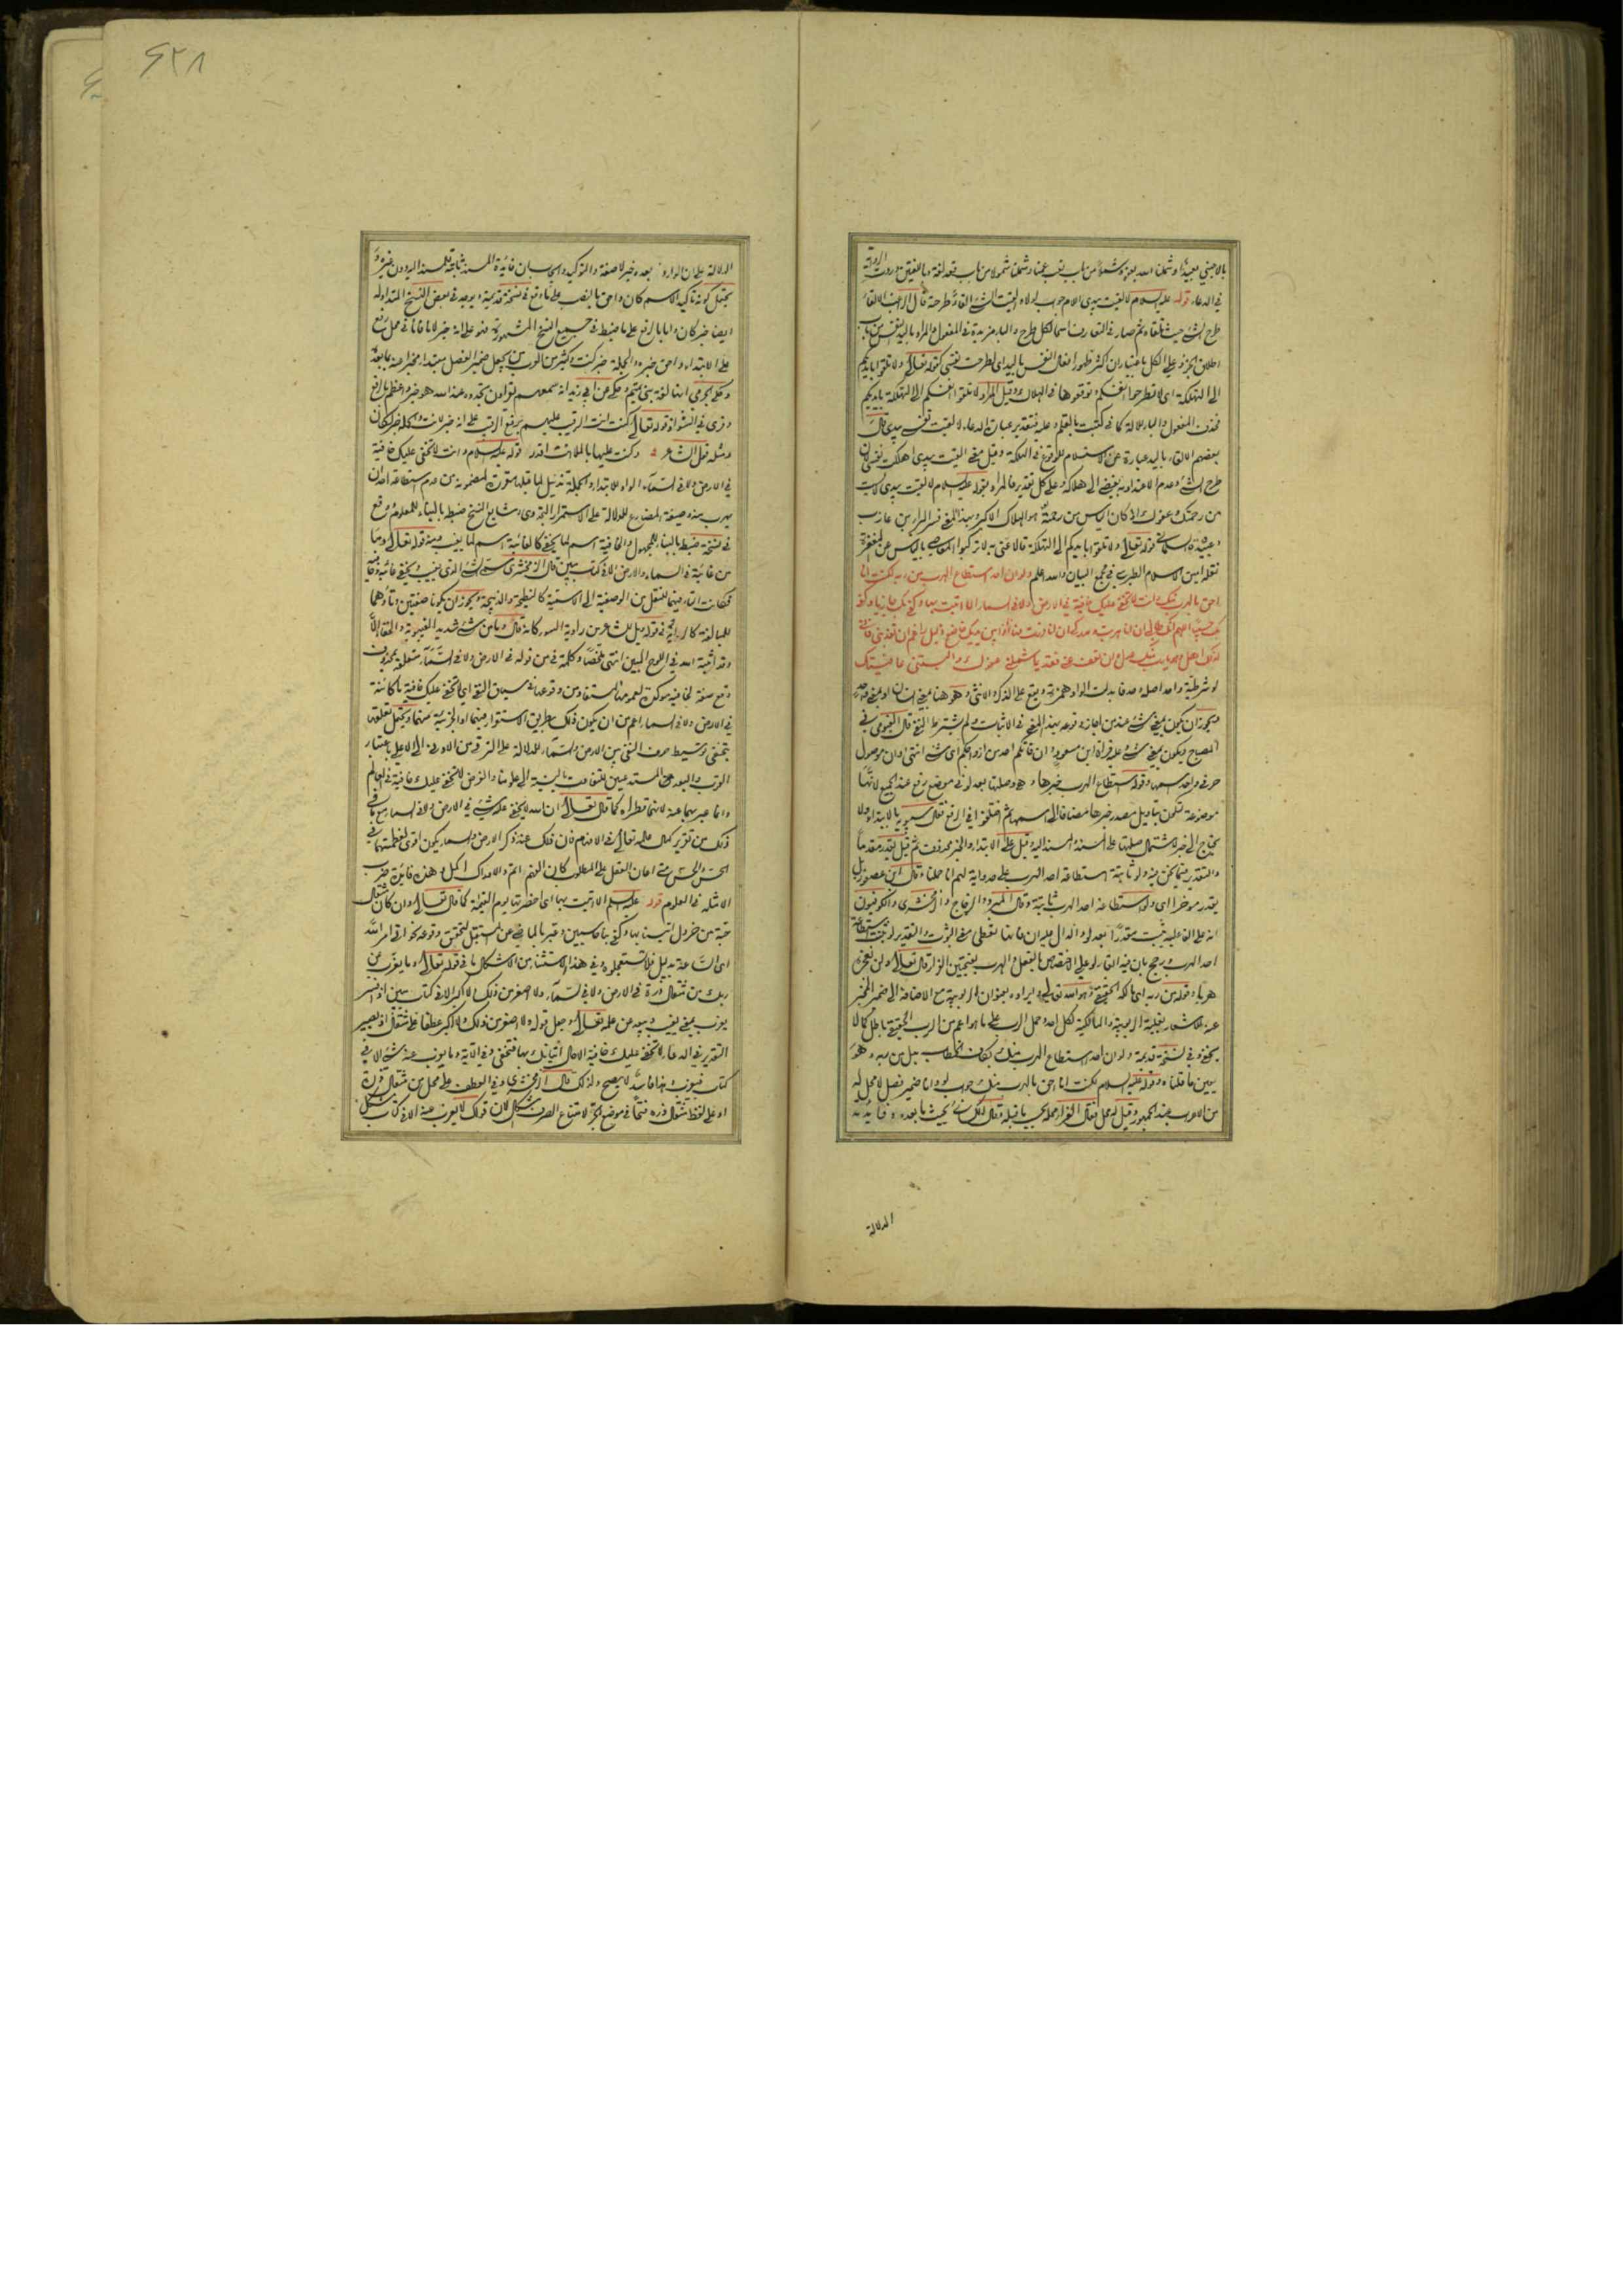 في الدعاء قوله عليه السلام لالقيت بيدي اللام جواب لولا والقيت الشئ القاء طرحته قال الراغب الالقاء
طرح الشئ حيث تلقاه ثم صار في التعارف اسما لكل طرح والباء مزيدة في المفعول والمراد باليد النفس من باب
اطلاق الجزء على الكل باعتبار ان اكثر ظهور افعال النفس باليد اي لطرحت نفسي كقوله تعالى ولا تلقوا بايديكم
الى التهلكة اي لا تطرحوا انفسكم وتوقعوها في الهلاك وقيل المراد لا تلقوا انفسكم الى التهلكة بايديكم
فحذف المفعول والباء للآلة كما في كتبت بالقلم وعليه فتقدير عبارة الدعاء لالقيت نفسي بيدي قال
بعضهم الالقاء باليد عبارة عن الاستسلام للوقوع في الهلكة وقيل معنى القيت بيدي اهلكت نفسي لان
طرح الشئ وعدم الاعتداد به يفضي الى هلاكه وعلى كل تقدير فالمراد بقوله عليه السلام لالقيت بيدي
من رحمتك وعفوك اذ كان الياس من رحمته هو الهلاك الاكبر وبهذا المعنى فسر البراء بن عازب
وعبيدة السلماني قوله تعالى ولا تلقوا بايديكم الى التهلكة قالا عنى به لا تركبوا المعاصي بالياس عن المغفرة
نقله امين الاسلام الطبرسي في مجمع البيان والله اعلم ولو ان احدا استطاع الهرب من ربه لكنت انا
احق بالهرب منك وانت لا تخفى عليك خافية في الارض ولا في السماء الا اتيت بها وكفى بك جازيا وكفى
بك حسيبا اللهم انك طالبي ان انا هربت ومدركي ان انا فررت فها أنا ذا بين يديك خاضع ذليل راغم ان تعذبني فاني
لذلك اهل وهو يا رب منك عدل وان تعف عني فقديما شملني عفوك والبستني عافيتك
لو شرطية واحد اصله وحد فابدلت الواو همزة ويقع على الذكر والانثى وهو هنا بمعنى انسان او بمعنى
ويجوز ان يكون بمعنى شئ عند من اجاز وقوعه بهذا المعنى في الاثبات ولم يشترط النفي قال الفيومي في
المصباح ويكون بمعنى شئ وعليه قراءة ابن مسعود وان فاتكم احد من ازواجكم اي شئ انتهى وان موصول
حرفي واحد اسمها وقوله استطاع الهرب خبرها وهي وصلتها بعد لو في موضع رفع عند الجميع لانها
موضوعة لتكون بتاويل مصدر خبرها مضافا الى اسمها ثم اختلفوا في الرافع فقال سيبويه بالابتداء ولا
يحتاج الى خبر لاشتمال صلتها على المسند والمسند اليه وقيل على الابتداء والخبر محذوف ثم قيل يقدر مقدما
والتقدير فيما نحن فيه ولو ثابتة استطاعة احد الهرب على حد واية لهم انا حملنا وقال ابن عصفور بل
يقدر موخرا اي ولو استطاعة احد الهرب ثابتة وقال المبرد والزجاج والزمخشري والكوفيون
انه على الفاعلية بثبت مقدرا بعد لو والدال عليه ان فانها تعطي معنى الثبوت والتقدير لو ثبت استطاعة
احد الهرب ورجح بان فيه ابقاء لو على الاختصاص بالفعل والهرب بفتحتين الفرار قال تعالى ولن نعجزه
هربا وقوله من ربه اي مالكه الحقيقي وهو الله تعالى وايراده بعنوان الربوبية مع الاضافة الى ضمير المخبر
عنه للاشعار بغلبة الربوبية والمالكية لكل احد وحمل الرب على ما هو اعم من الرب الحقيقي باطل كما لا
يخفى وفي نسخة قديمة ولو ان احدا استطاع الهرب منك بكاف الخطاب بدل من ربه وهو
يبين ما قلناه وقوله عليه السلام لكنت انا احق بالهرب منك جواب لو وانا ضمير فصل لا محل له
من الاعراب عند الجمهور وقيل له محل فقال الفراء محله بحسب ما قبله وقال الكسائي بحسب ما بعده وفائدته
الدلالة
٤٢٨
الدلالة على ان الوارد بعده خبر لا صفة والتوكيد وايجاب ان فائدة المسند ثابتة للمسند اليه دون غيره و
يحتمل كونه تاكيدا لاسم كان واحق بالنصب على ما وقع في نسخة قديمة ويوجد في بعض النسخ المتداولة
ايضا خبر كان واما بالرفع على ما ضبط في جميع النسخ المشهورة فهو على انه خبر لانا فانا في محل رفع
على الابتداء واحق خبره والجملة خبر كنت وكثير من العرب من يجعل ضمير الفصل مبتدا مخبرا عنه بما بعده
وحكى الجرمي انها لغة بني تميم وحكى عن ابي زيد انه سمعهم يقراون تجدوه عند الله هو خير واعظم بالرفع
وقرئ في الشواذ قوله تعالى كنت انت الرقيب عليهم برفع الرقيب على انه خبر لانت والجملة خبر لكان
ومثله قول الشاعر وكنت عليها بالملا انت اقدر قوله عليه السلام وانت لا تخفى عليك خافية
في الارض ولا في السماء الواو للابتداء والجملة تذييل لما قبلها مقررة لمضمونه من عدم استطاعة احد ان
يهرب منه وصيغة المضارع للدلالة على الاستمرار التجددي وشايع النسخ ضبطه بالبناء للمعلوم ووقع
في نسخة ضبطه بالبناء للمجهول والخافية اسم لما يخفى كالغائبة اسم لما يغيب ومنه قوله تعالى وما
من غائبة في السماء والارض الا في كتاب مبين قال الزمخشري سمي الشئ الذي يغيب ويخفى غائبة وخافية
فكانت التاء فيهما للنقل من الوصفية الى الاسمية كالنطيحة والذبيحة ويجوز ان يكونا صفتين وتاؤهما
للمبالغة كالراوية في قوله ويل للشاعر من راوية السوء كانه قال وما من شئ شديد الغيبوبة والخفاء الا
وقد اثبته الله في اللوح المبين انتهى ملخصا وكلمة في من قوله في الارض ولا في السماء متعلقة بمحذوف
وقع صفة لخافية موكدة لعمومها المستفاد من وقوعها في سياق النفي اي لا تخفى عليك خافية ما كائنة
في الارض ولا في السماء اعم من ان يكون ذلك بطريق الاستقرار فيهما او الجزئية منهما ويحتمل تعلقها
بتخفى وتوسيط حرف النفي بين الارض والسماء للدلالة على الترقي من الادنى الى الاعلى باعتبار
القرب والبعد منا المستدعيين للتفاوت بالنسبة الى علومنا والغرض لا تخفى عليك خافية في العالم
وانما عبر بهما عنه لانهما قطراه كما قال تعالى ان الله لا يخفى عليه شئ في الارض ولا في السماء مع ما في
ذلك من تقرير كمال علمه تعالى في الافهام فان ذلك عند ذكر الارض والسماء يكون اقوى لعظمتهما في
الحس والحس متى اعان العقل على المطلوب كان الفهم اتم والادراك اكمل وهذه فائدة ضرب
الامثلة في العلوم قوله عليه السلام الا اتيت بها اي احضرتها يوم القيمة كما قال تعالى وان كان مثقال
حبة من خردل اتينا بها وكفى بنا حاسبين وعبر بالماضي عن المستقبل لتحقق وقوعه نحو اتى امر الله
اي الساعة بدليل فلا تستعجلوه وفي هذا الاستثناء من الاشكال ما في قوله تعالى وما يعزب عن
ربك من مثقال ذرة في الارض ولا في السماء ولا اصغر من ذلك ولا اكبر الا في كتاب مبين اذا فسر
يعزب بمعنى يغيب ويبعد عن علمه تعالى وجعل قوله ولا اصغر من ذلك ولا اكبر عطفا على مثقال اذ يصير
التقدير في الدعاء لا تخفى عليك خافية الا حال اتيانك بها فتخفى وفي الآية وما يعزب عنه شئ الا في
كتاب فيعزب وهذا فاسد لا يصح ولذلك قال الزمخشري وفي العطف على محل من مثقال ذرة
او على لفظ مثقال ذرة فتحا في موضع الجر لامتناع الصرف اشكال لان قولك لا يعزب عنه الا في كتاب مشكل